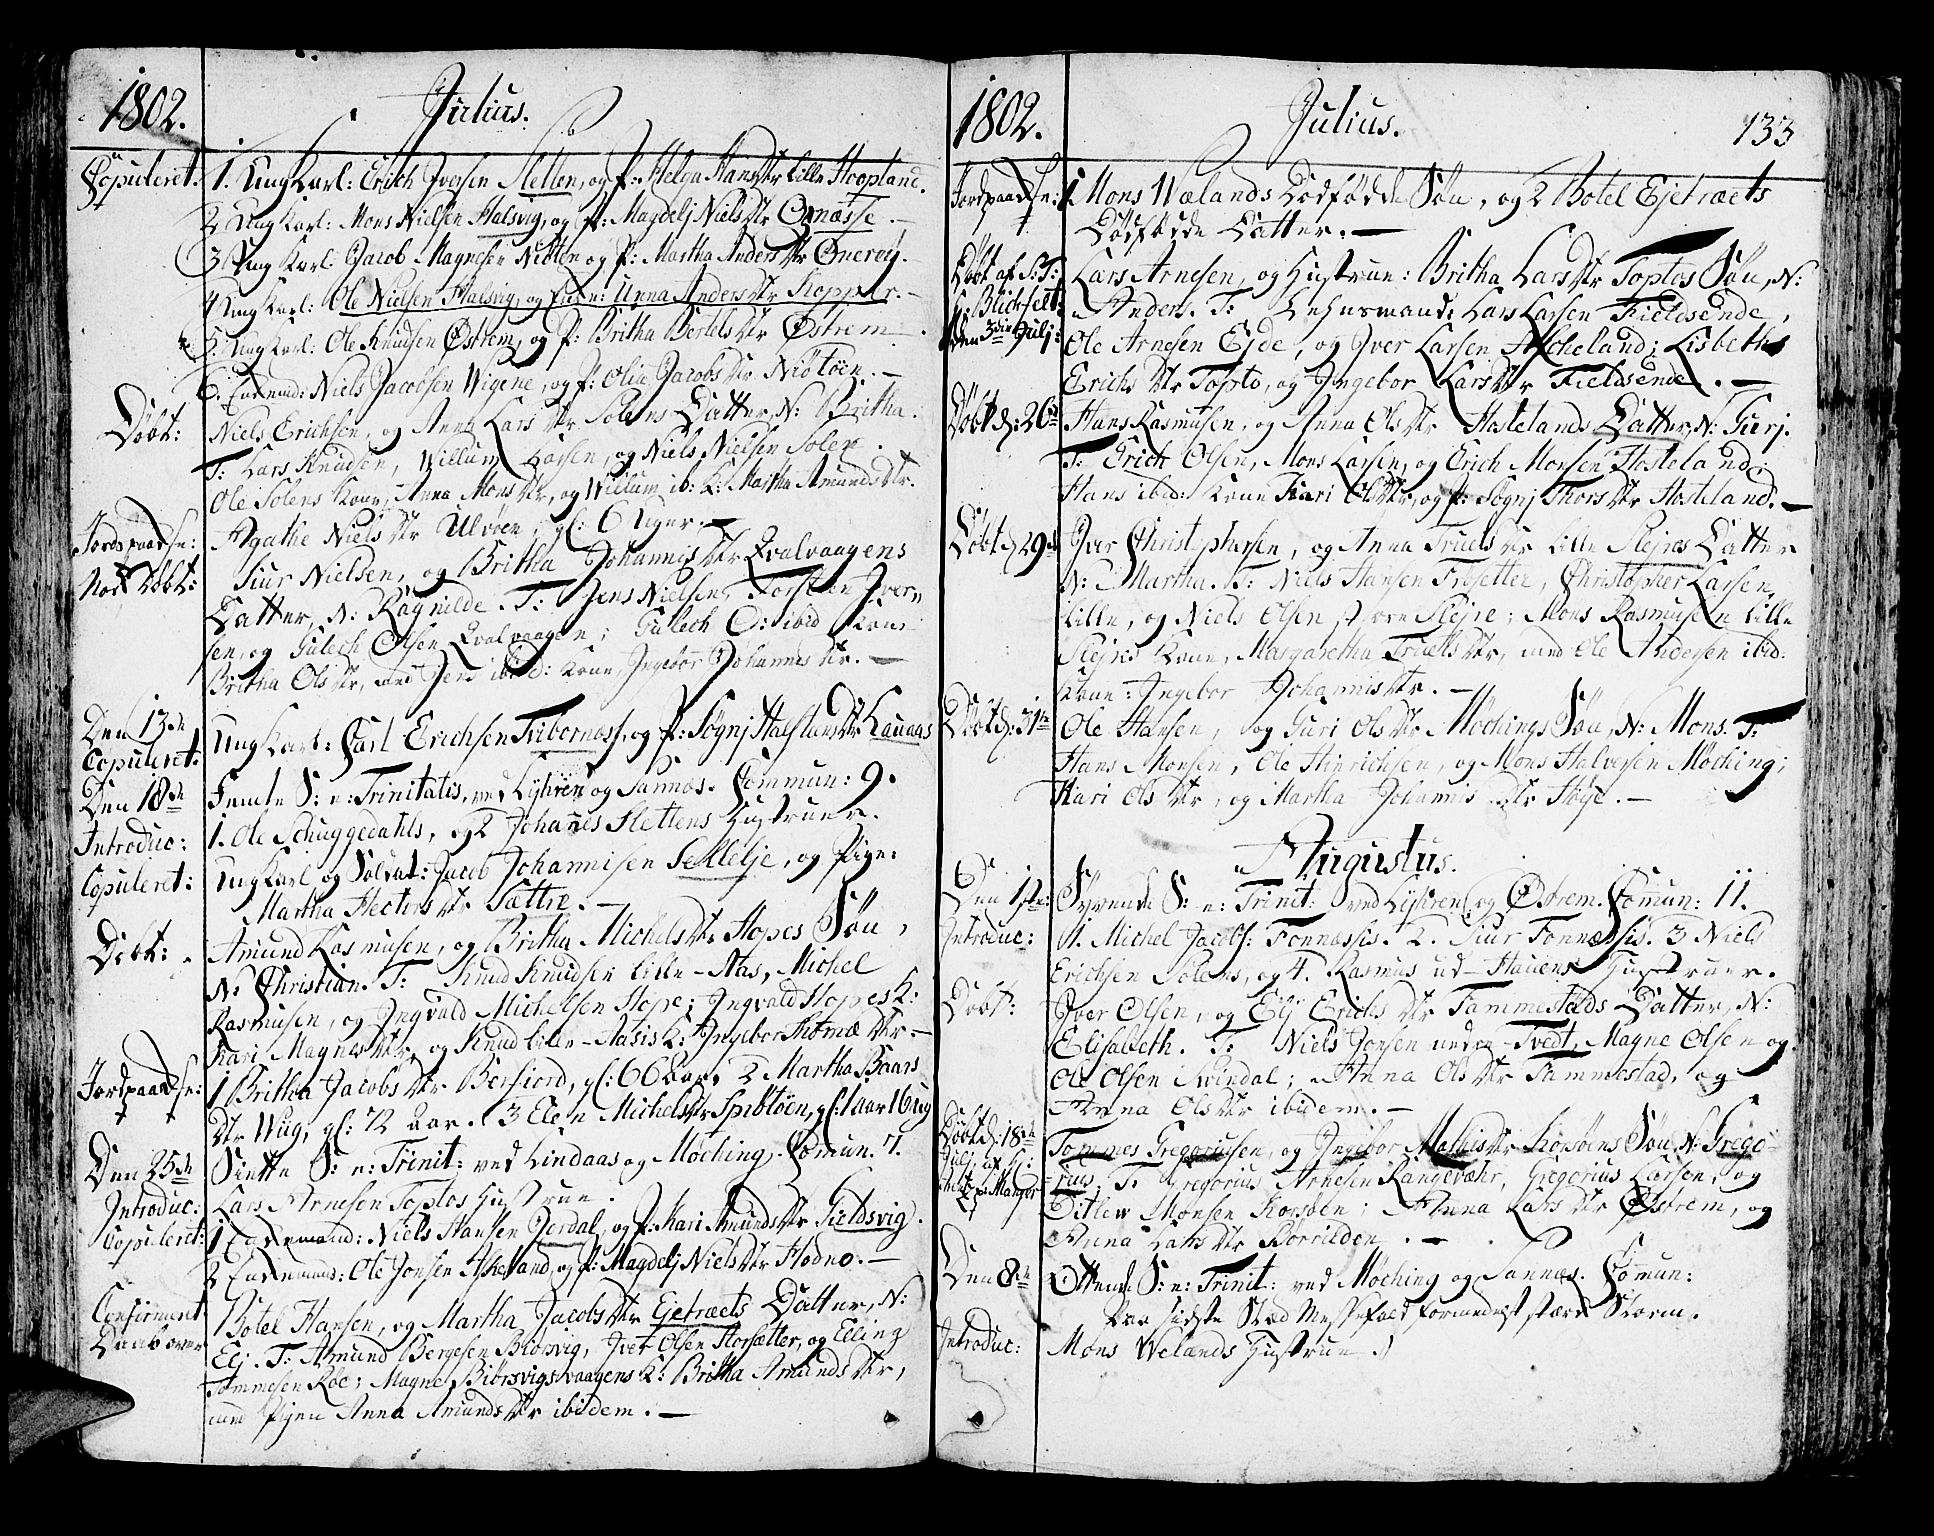 1802.
Julius.
Copuleret.
1. Ung Karl: Erich Iversen Sletten, og P: Helga Hansdtr Lille Hoopland.
2 Ung Karl: Mons Nielsen Halsvig, og P: Magdelj Nielsdtr Qvnæsse.
3 Ung Karl: Jacob Magnesen Nietten og P: Martha Andersdtr Æneroy.
4 Ung Karl: Ole Nielsen Halsvig, og Enke: Anna Andersdtr Kopper.
5. Ung Karl: Ole Knudsen Østrem, og P: Britha Bertelsdtr Østrem.
6. Enkemd: Niels Jacobsen Wigene, og P: Olia Jacobsdtr Niøtøen.
Døbt:
Niels Erichsen, og Anna Larsdtr Solens Datter, N: Britha.
T: Lars Knudsen, Willum Larsen, og Niels Nielsen Solen.
Ole Solens Kone, Anna Monsdtr, og Willum ib: K: Martha Amundsdtr.
Jordspaadse:
Agathe Nielsdtr Ulvøen, gl: 6 Uger.
Nok Døbt:
Siur Nielsen, og Britha Johannisdtr Qvalvaagens
Datter, N: Ragnilde. T: Jens Nielsen, Torsten Iver-
sen, og Gulech Olsen Qvalvaagen; Gulech O: ibid Kone
Britha Olsdtr, med Jens ibid: Kone, Ingebor Johannesdtr.
Den 13de
Copuleret:
Ung Karl: Carl Erichsen Tvibornæss, og P: Sognj Halstensdtr Hauaas
Den 18de
Femte S: e: Trinitatis, ved Lyhren og Sannæs. Commun: 9.
Introduc:
1. Ole Schuggedahls, og 2 Johannes Slettens Hustruer.
Copuleret:
Ung Karl og Soldat: Jacob Johannisen Sellelje, og Pige:
Martha Hectersdtr Sættre.
Døbt:
Amund Rasmusen, og Britha Michelsdtr Hopes Søn,
N: Christian. T: Knud Knudsen Lille-Aas, Michel
Rasmusen, og Ingvald Michelsen Hope; Ingvald Hopes K:
Kari Magnesdtr, og Knud Lille-Aasis K: Ingebor Thomædtr.
Jordpaadse:
1 Britha Jacobsdtr Bersiord, gl: 66 Aar, 2 Martha Baars
dtr Wug, gl: 72 Aar. 3 Elen Michelsdtr Spibtöen, gl: 1 Aar 16 Ug
Den 25de
Siette S: e: Trinit: ved Lindaas og Møching. Comun. 7.
Introduc:
Lars Arnesen Toptos Hustrue.
Copuleret:
1 Enkemand: Niels Hansen Jordal, og P: Kari Amundsdtr Fieldsvig.
2 Enkemand: Ole Jonsen Askeland, og P: Magdelj Nielsdtr Hodne.
Confirment
Daab over
Botel Hansen, og Martha Jacobsdtr Ejetræets Datter, N:
Elj. T: Amund Bergesen Biørsvig, Iver Olsen Storsætter, og Elling
Tommesen Røe; Magne Biørsvigsvaagens K: Britha Amundsdtr,
med Pigen Anna Amundsdtr ibidem.
1802.
Julius.
133
Jordspaadse:
1 Mons Wælands Dødfødde Søn, og 2 Botel Ejetræets
Dødfødde Datter.
Døbt af S: T:
H: Blichfelt
den 3die Julj:
Lars Arnesen, og Hustrue: Britha Larsdtr Toptos Søn, N:
Anders. T: Lehnsmand: Lars Larsen Fieldsende,
Ole Arnesen Ejde, og Iver Larsen Ascheland; Lisbeth
Erichsdtr Topto, og Ingebor Larsdtr Fieldsende.
Døbt d: 26de
Hans Rasmusen, og Anna Olsdtr Hostelands Datter, N: Guerj.
T: Erich Olsen, Mons Larsen, og Erich Monsen Hosteland;
Hans ibid: Kone Kari Olsdtr, og P: Sognj Thorsdtr Hosteland.
Døbt d 29de
Iver Christophersen, og Anna Truelsdtr Lille Slejres Datter
N: Martha. T: Niels Hansen Fresetter, Christopher Larsen,
Lille, og Niels Olsen Store Slejre; Mons Rasmusen Lille
Slejres Kone, Margaretha Truelsdtr, med Ole Andersen ibid:
Kone: Ingebor Johannisdtr.
Døbt d: 31te
Ole Hansen, og Guri Olsdtr Møchings Søn, N: Mons. T:
Hans Monsen, Ole Hinrichsen, og Mons Halversen Møching;
Kari Olsdtr, og Martha Johannisdtr Høye.
Augustus.
Den 1ste:
Syvende S: e: Trinit: ved Lyhren og Østrem. Comun: 11.
Introduc:
1. Michel Jacobs: Fonnæssis. 2. Siur Fonnæssis. 3 Niels
Erichsen Solens, og 4. Rasmus ud-Hauens Hustruer.
Døbt:
Iver Olsen, og Elj Erichsdtr Tammestads Datter, N:
Elisabeth. T: Niels Jonsen nedre-Tvedt, Magne Olsen og
Ole Olsen Svindal; Anna Olsdtr Tammestad, og
Anna Olsdtr ibidem.
Døbt d: 18de
Julj af H:
Manger
Tommes Gregoriusen, og Ingebor Mathisdtr Korsøens Søn, N: Grego-
rius. T: Gregorius Arnesen Rangevahr, Gregorius Larsen, og
Ditlew Monsen Korsøen; Anna Larsdtr Østrem, og
Anna Larsdtr Borrilden.
Den 8de
Ottende S: e: Trinit: ved Møching og Sannæs. Comun:
Paa sidste Stæd Messefald formedelst stærk Storm.
Introduc:
Mons Welands Hustrue.